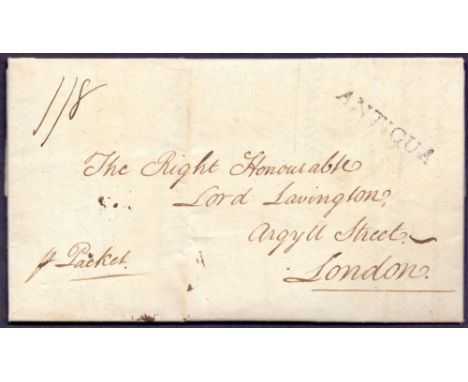 1/8
ANTIGUA
The Right Honourable
Lord Lavington,
Argyll Street
London.
p Packet.